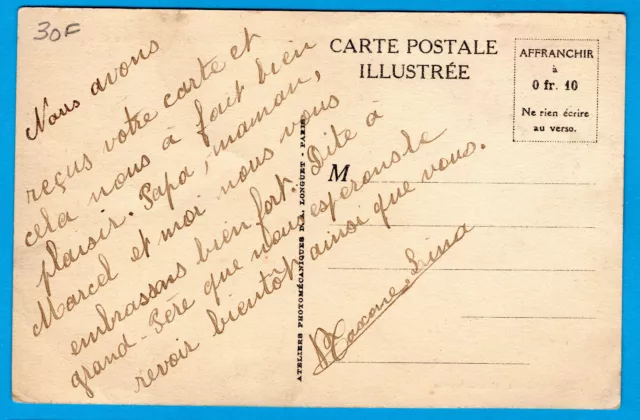 30F
CARTE POSTALE
ILLUSTRÉE
AFFRANCHIR
à
0 fr. 10
Ne rien écrire
au verso.
M
ATELIERS PHOTOMÉCANIQUES D. A. LONGUET - PARIS
Nous avons
reçus votre carte et
cela nous à fait bien
plaisir. Papa, maman,
Marcel et moi nous vous
embrassons bien fort. Dite à
grand-Père que nous esperons le
revoir bientôt ainsi que vous.